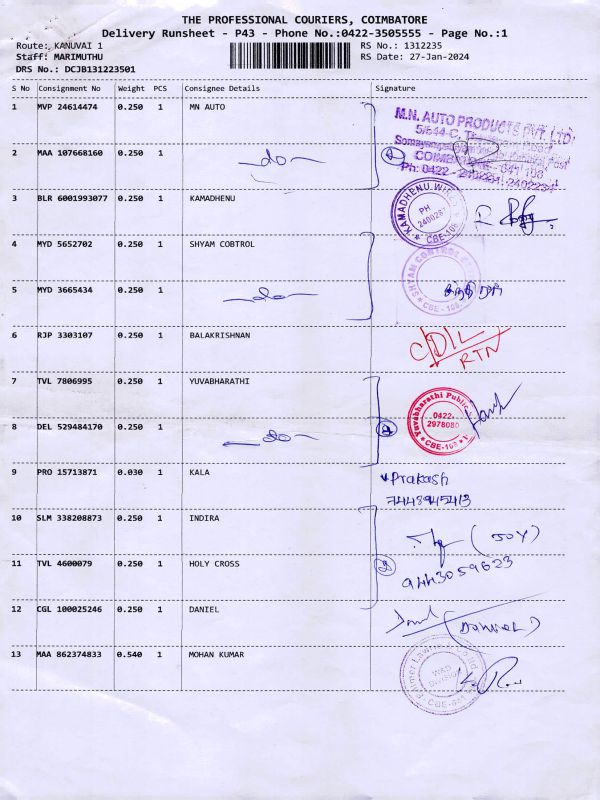 THE PROFESSIONAL COURIERS, COIMBATORE
Delivery Runsheet - P43 - Phone No.:0422-3505555 - Page No.:1
Route: KANUVAI 1 RS No.: 1312235
Staff: MARIMUTHU RS Date: 27-Jan-2024
DRS No.: DCJB131223501
S No Consignment No Weight PCS Consignee Details Signature
1 MVP 24614474 0.250 1 MN AUTO
M.N. AUTO PRODUCTS PVT. LTD
5/644-C,
COIMBATORE - 641 108
Ph: 0422 - 2402231, 2402234
2 MAA 107668160 0.250 1 -do- 2
3 BLR 6001993077 0.250 1 KAMADHENU
KAMADHENU
PH
2400287
CBE-108
4 MYD 5652702 0.250 1 SHYAM COBTROL
SHYAM CONTROL
CBE - 108
5 MYD 3665434 0.250 1 -do-
6 RJP 3303107 0.250 1 BALAKRISHNAN
CD/L
RTN
7 TVL 7806995 0.250 1 YUVABHARATHI
Yuvabharathi Public
0422-
2978080
CBE-108
8 DEL 529484170 0.250 1 -do- 2
9 PRO 15713871 0.030 1 KALA Prakash
7448945413
10 SLM 338208873 0.250 1 INDIRA (JOY)
11 TVL 4600079 0.250 1 HOLY CROSS 2 9443059623
12 CGL 100025246 0.250 1 DANIEL
13 MAA 862374833 0.540 1 MOHAN KUMAR
W&D
DIVISION
CBE-641